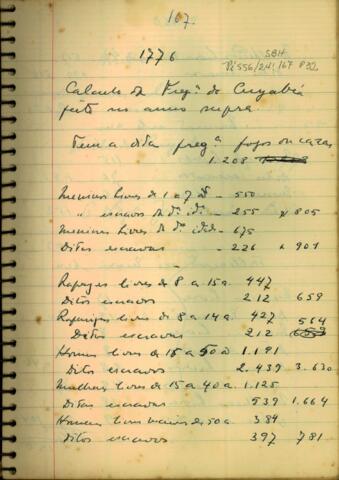 167.
1776
SBH
Pi 556/241/67 P32
Calculo da Freg.ª do Cuyabá
feito no anno supra.
Tem a dita freg.ª fogos ou casas
1.208
Meninos livres de 1 a 7 - 550
" escravos de da id. - 255 805
Meninas livres de da idade - 675
Ditas escravas - 226 901
Rapazes livres de 8 a 15 a. 447
Ditos escravos 212 659
Raparigas livres de 8 a 14 a. 427 564
Ditas escravas 212
Homens livres de 15 a 50 a. 1.191
Ditos escravos 2.439 3.630
Mulheres livres de 15 a 40 a. 1.125
Ditas escravas 539 1.664
Homens livres maiores de 50 a. 384
Ditos escravos 397 781